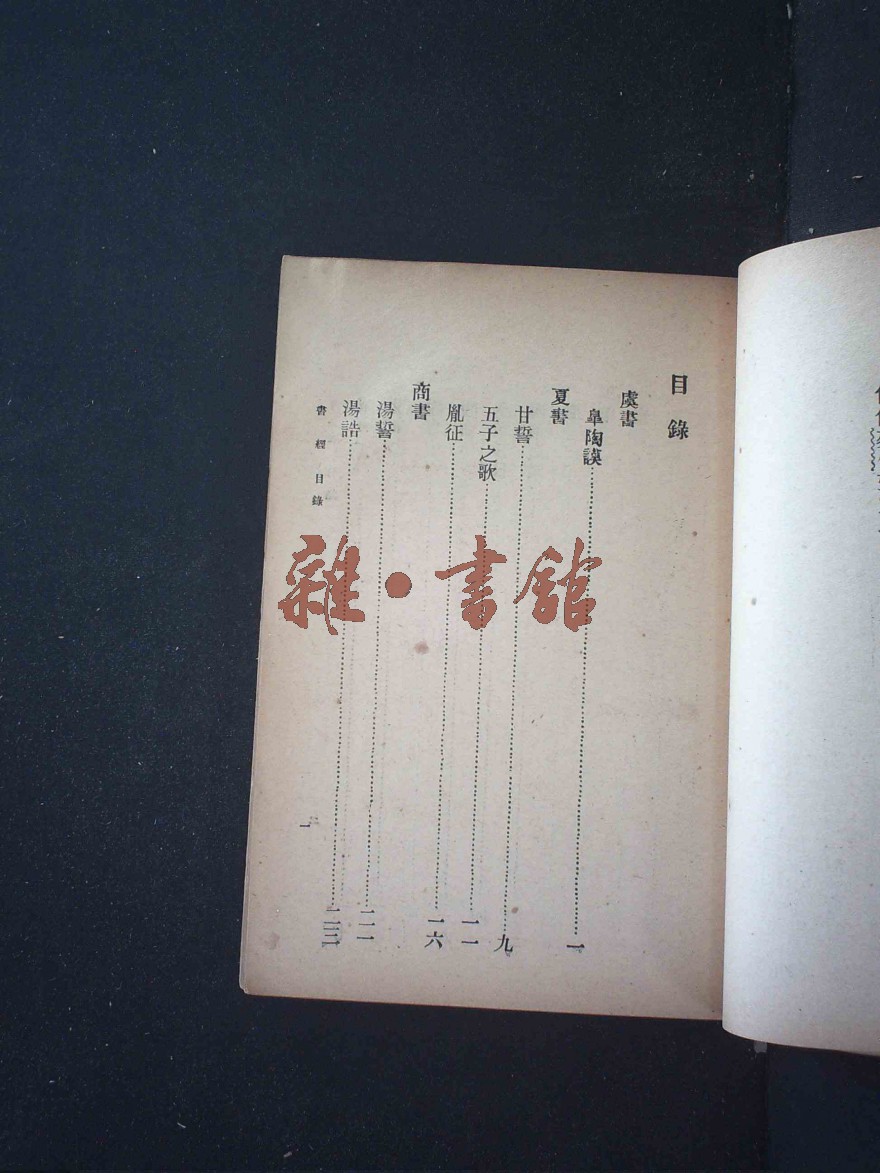 目錄
虞書
皐陶謨……一
夏書
甘誓……九
五子之歌……一一
胤征……一六
商書
湯誓……二一
湯誥……二三
書經目錄
一
雜·書館